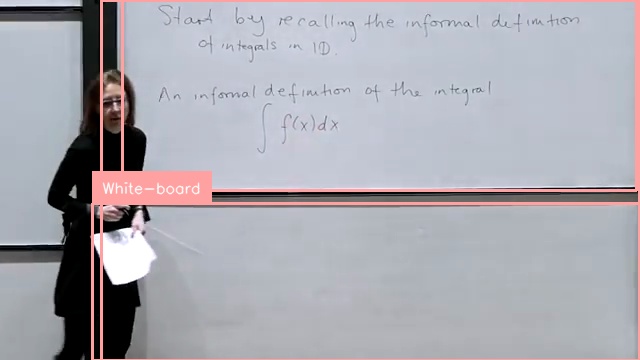 Start by recalling the informal definition
of integrals in 1D.
An informal definition of the integral
∫ f(x)dx
White-board